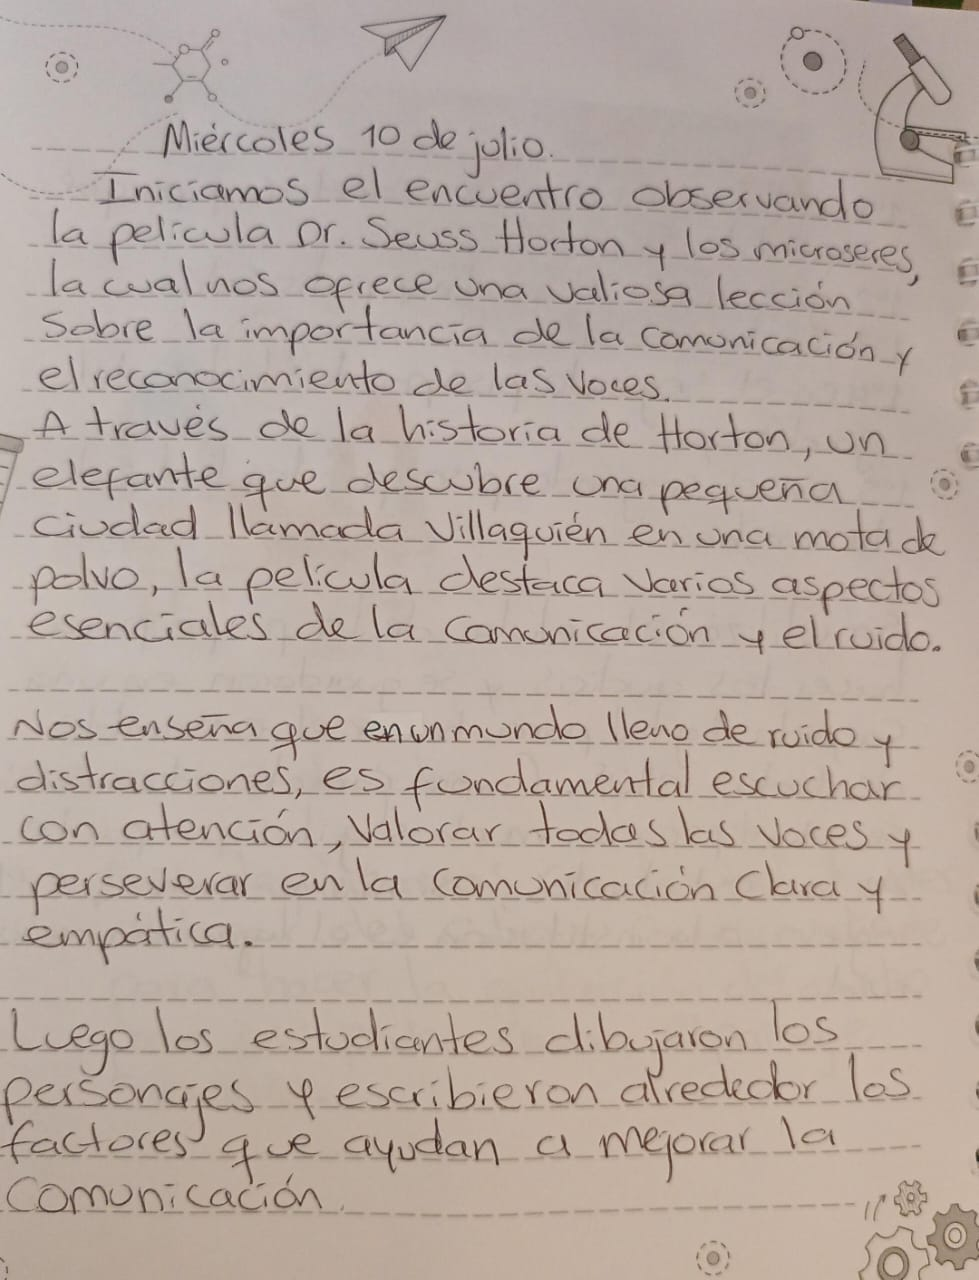 Miércoles 10 de julio.
Iniciamos el encuentro observando
la pelicula Dr. Seuss Horton y los microseres,
la cual nos ofrece una valiosa lección
sobre la importancia de la comunicación y
el reconocimiento de las voces.
A través de la historia de Horton, un
elefante que descubre una pequeña
ciudad llamada Villaquién en una mota de
polvo, la pelicula destaca varios aspectos
esenciales de la comunicación y el ruido.
Nos enseña que en un mundo lleno de ruido y
distracciones, es fundamental escuchar
con atención, valorar todas las voces y
perseverar en la comunicación clara y
empática.
Luego los estudiantes dibujaron los
personajes y escribieron alrededor los
factores que ayudan a mejorar la
comunicación.